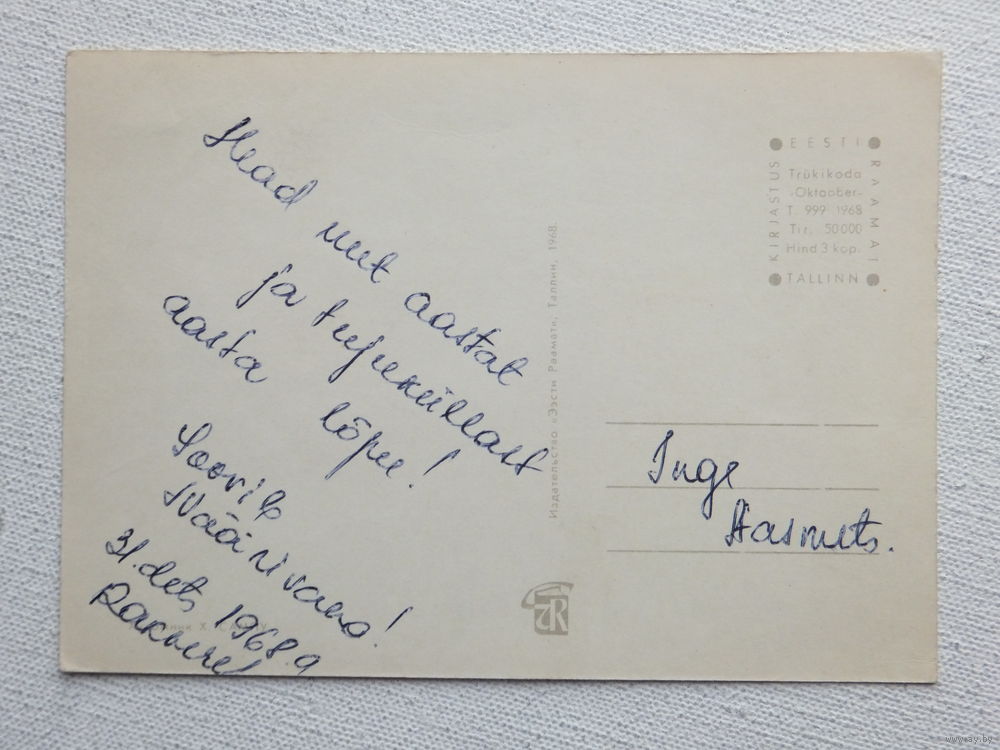 Head uut aastat
ja tujuküllast
aasta lõpu!
Soovib
Näärivana!
31. dets 1968.a
Rakveres
Издательство «Ээсти Раамат», Таллин, 1968.
EESTI
RAAMAT
KIRJASTUS
TALLINN
Trükikoda
«Oktoober»
T. 999 1968
Tir. 50000
Hind 3 kop.
Inge
Aasmets.
www.ay.by